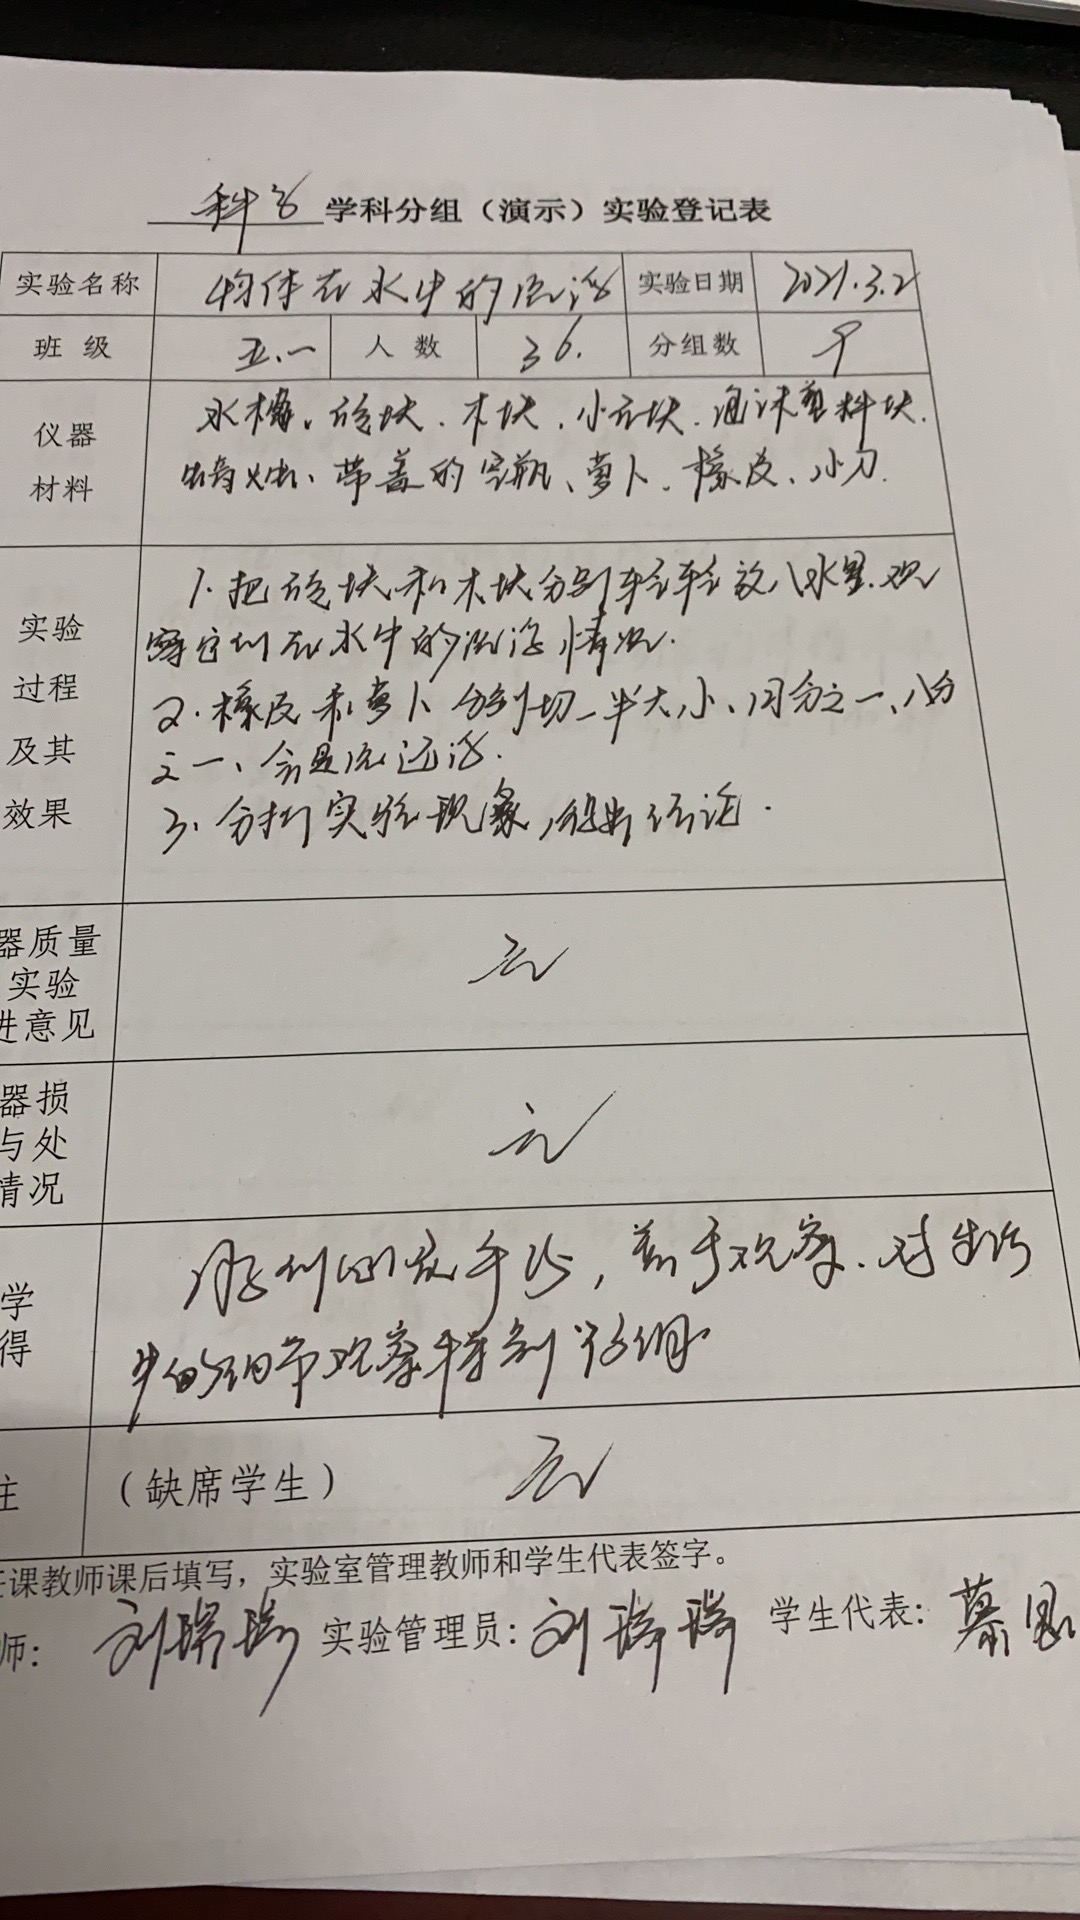 科学 学科分组（演示）实验登记表
实验名称 物体在水中的沉浮 实验日期 2021.3.2
班 级 五.一 人 数 36. 分组数 9
仪器
材料
水槽、砖块、木块、小石块、泡沫塑料块、
蜡烛、带盖的空瓶、萝卜、橡皮、小刀.
实验
过程
及其
效果
1.把砖块和木块分别轻轻放入水里.观
察它们在水中的沉浮情况.
2.橡皮和萝卜分别切一半大小、四分之一、八分
之一、会是沉还浮.
3.分析实验现象,得出结论.
器质量
实验
进意见
无
器损
与处
情况
无
学
得
孩子们的 善于观察.对生活
中的细节观察特别仔细
注 （缺席学生） 无
任课教师课后填写，实验室管理教师和学生代表签字。
师： 刘瑞瑞 实验管理员：刘瑞瑞 学生代表：慕